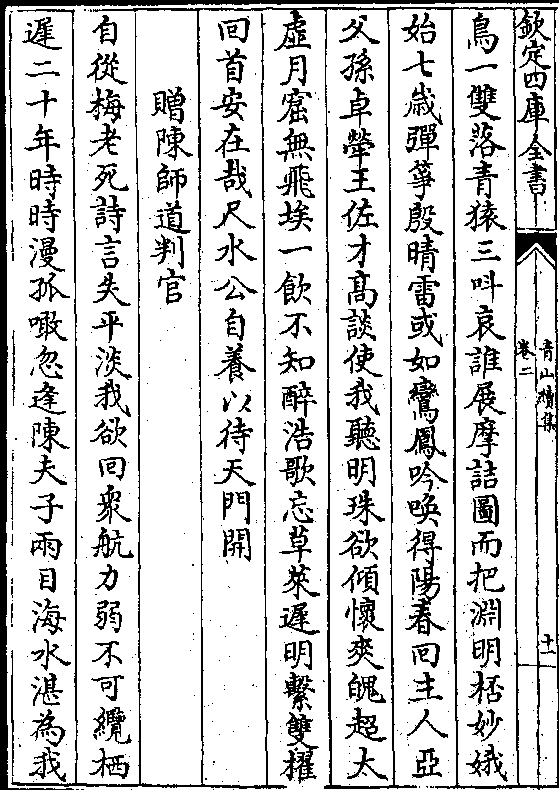 欽定四庫全書
青山續集
卷二
十一
鳥一雙落青猿三呌哀誰展摩詰圖而把淵明桮妙娥
始七歳彈筝殷晴雷或如鸞鳳吟喚得陽春回主人亞
父孫卓犖王佐才髙談使我聽明珠欲傾懷爽魄超太
虚月窟無飛埃一飲不知醉浩歌忘草萊遲明繫雙櫂
回首安在哉尺水公自養以待天門開
贈陳師道判官
自從梅老死詩言失平淡我欲回衆航力弱不可纜栖
遲二十年時時漫孤噉忽逢陳夫子兩目海水湛為我